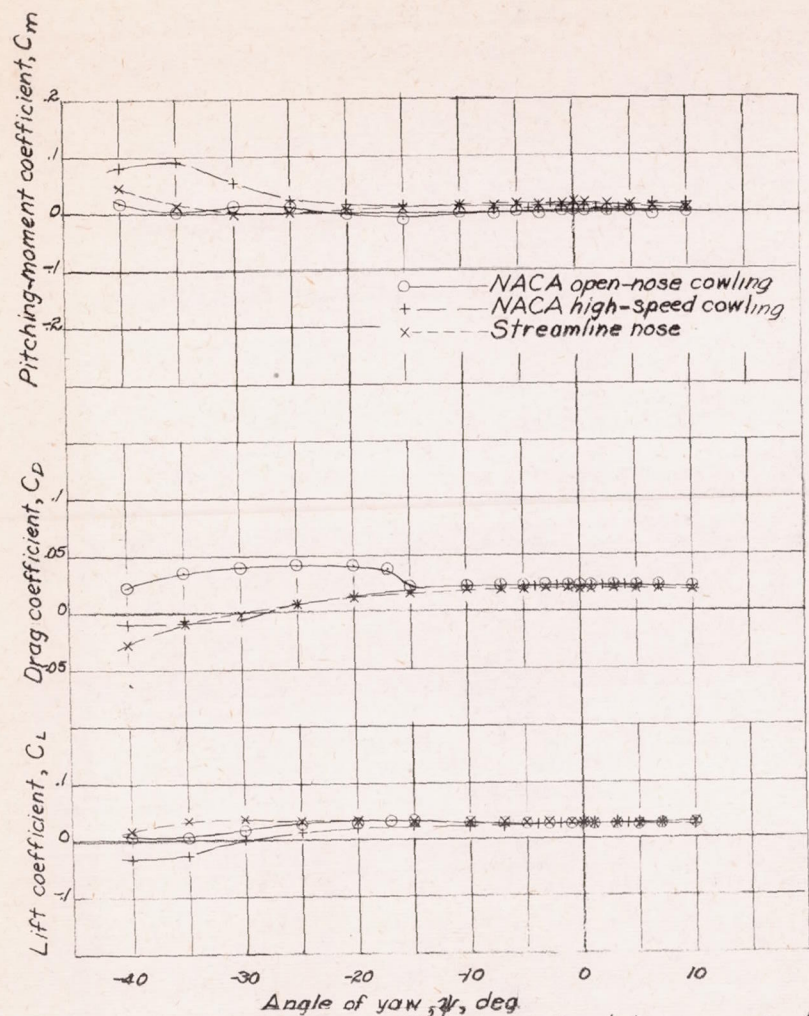 Pitching-moment coefficient, Cm
.2
.1
0
-.1
-.2
NACA open-nose cowling
NACA high-speed cowling
Streamline nose
Drag coefficient, CD
.1
.05
0
-.05
Lift coefficient, CL
.1
0
-.1
-40 -30 -20 -10 0 10
Angle of yaw, ψ, deg